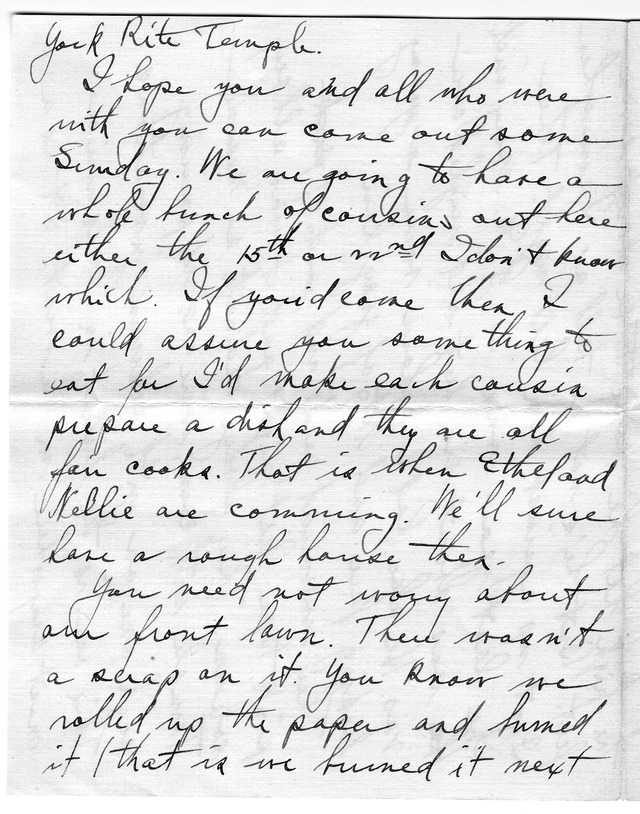 York Rite Temple.
I hope you and all who were
with you can come out some
Sunday. We are going to have a
whole bunch of cousins out here
either the 15th or 22nd I don't know
which. If you'd come then I
could assure you something to
eat for I'd make each cousin
prepare a dish and they are all
fan cooks. That is when Ethel and
Nellie are comming. We'll sure
have a rough house then.
You need not worry about
our front lawn. There wasn't
a scrap on it. You know we
rolled up the paper and burned
it (that is we burned it next